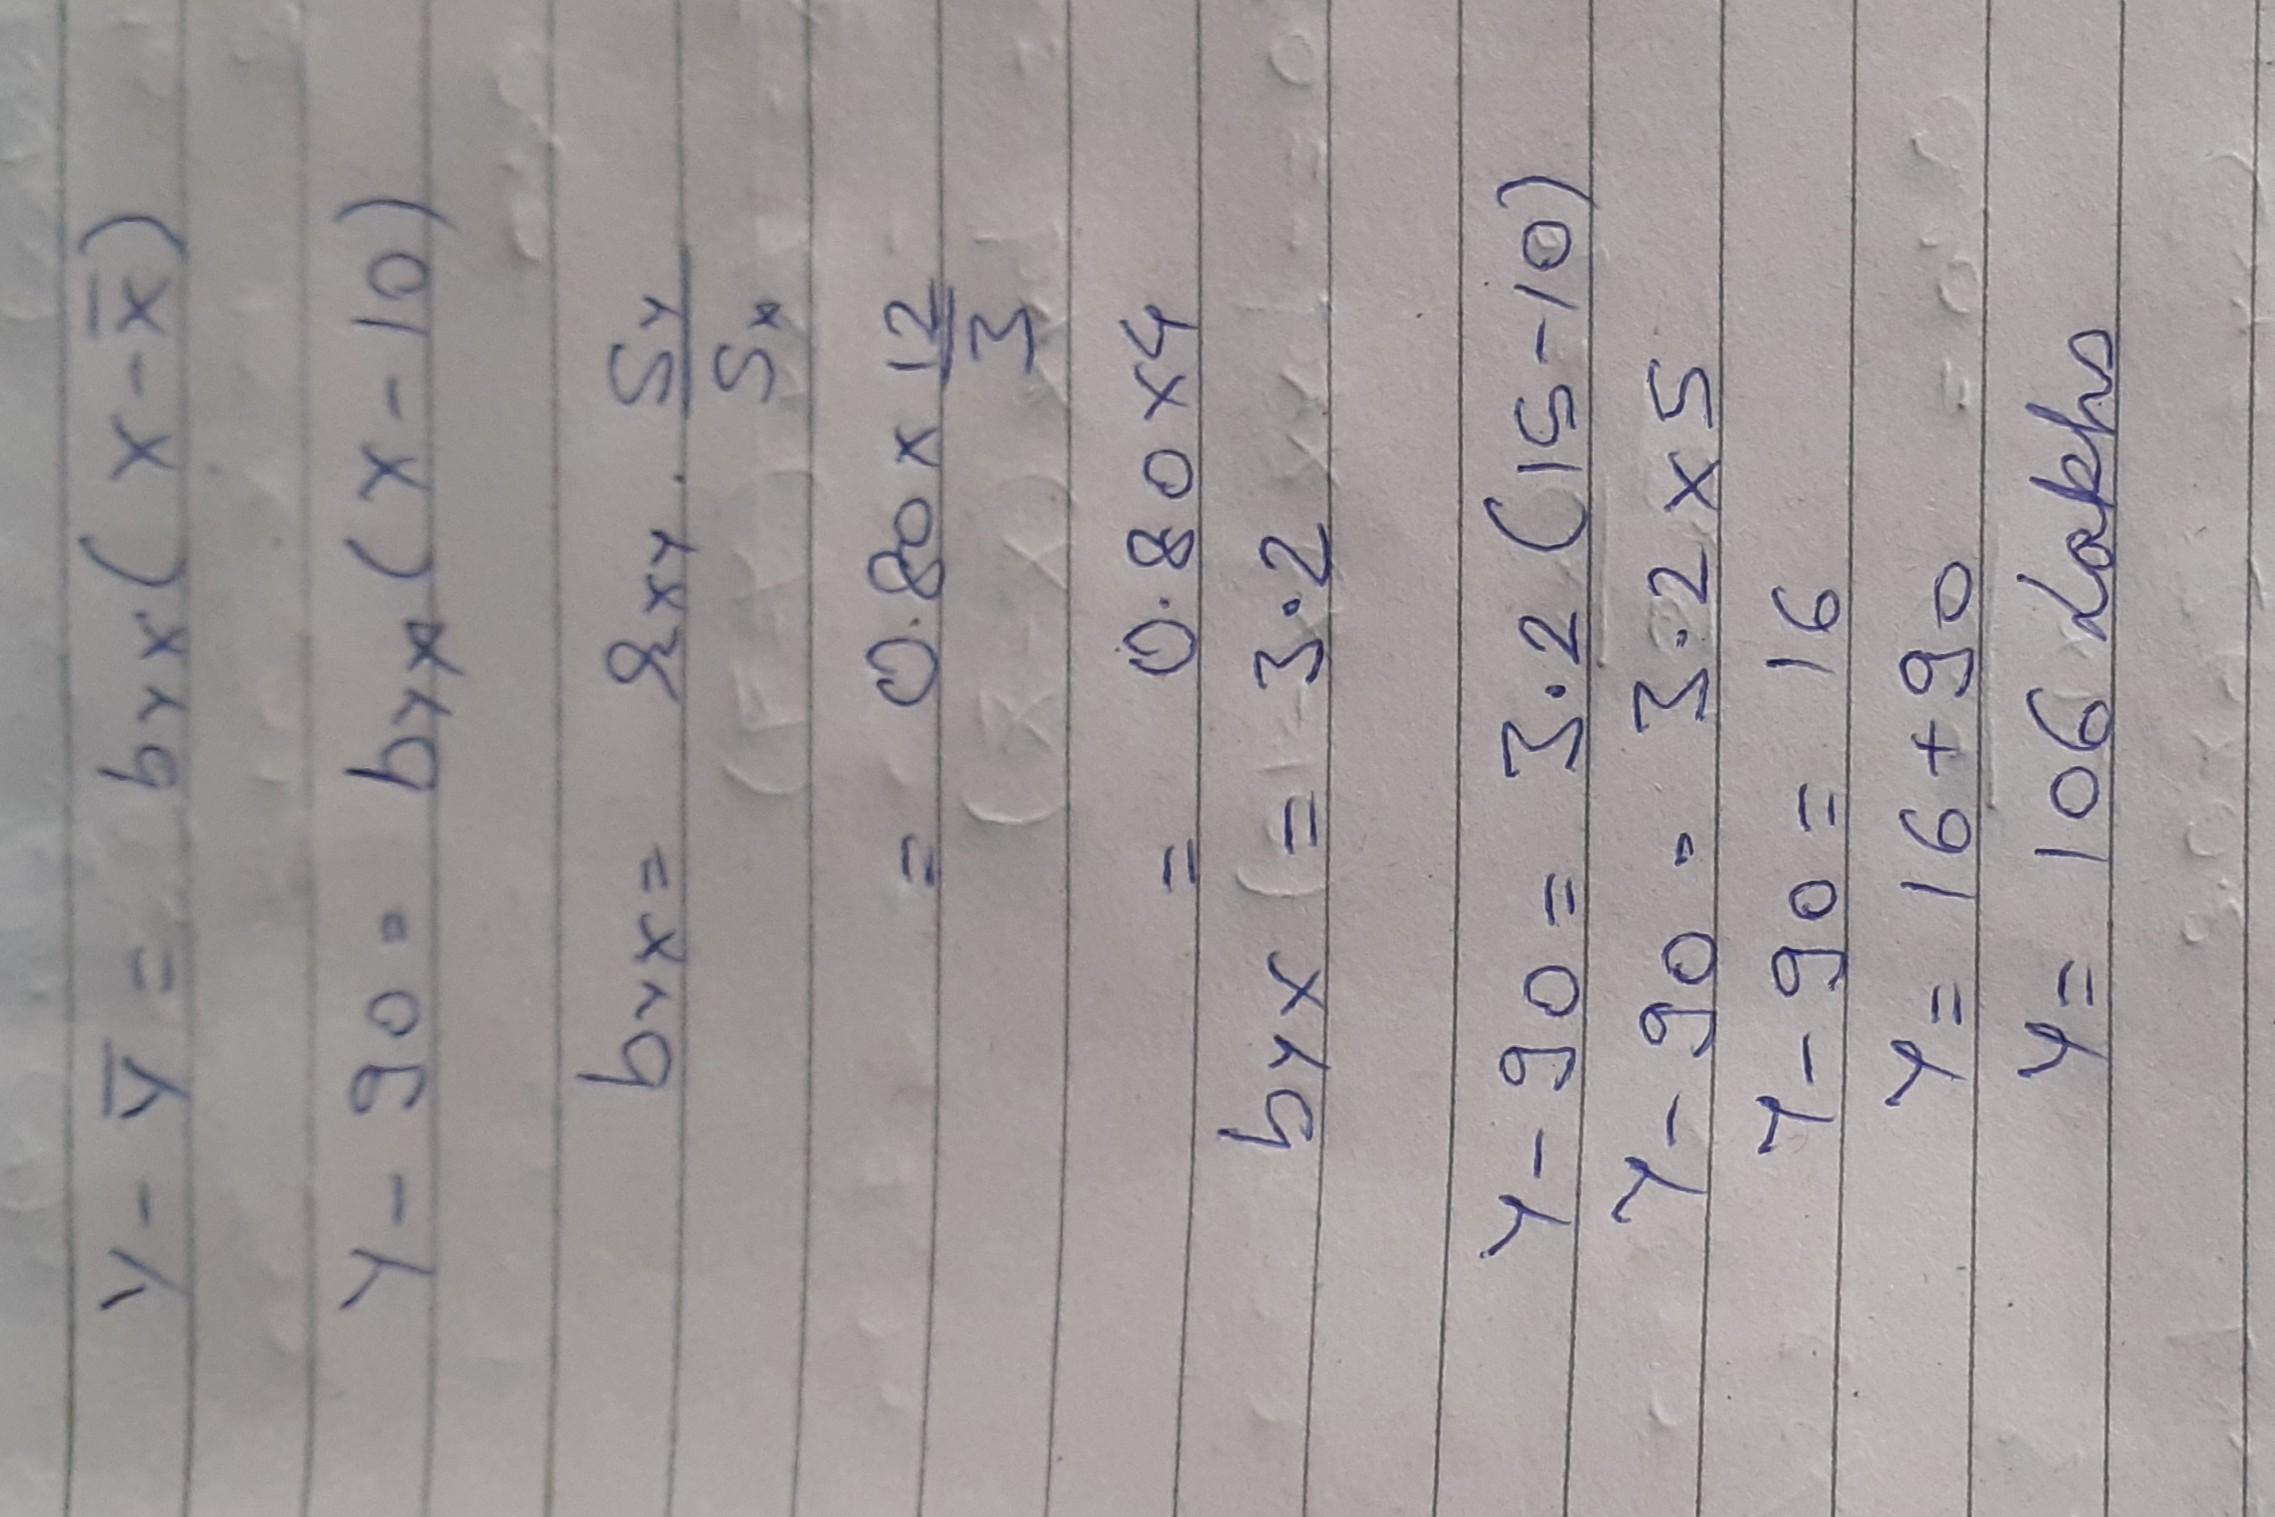 Y - Y̅ = byx (x - x̅)
Y - 90 = byx (x - 10)
byx = rxy . Sy/Sx
= 0.80 x 12/3
= 0.80 x 4
byx = 3.2
Y - 90 = 3.2 (15 - 10)
Y - 90 = 3.2 x 5
Y - 90 = 16
Y = 16 + 90
Y = 106 Lakhs